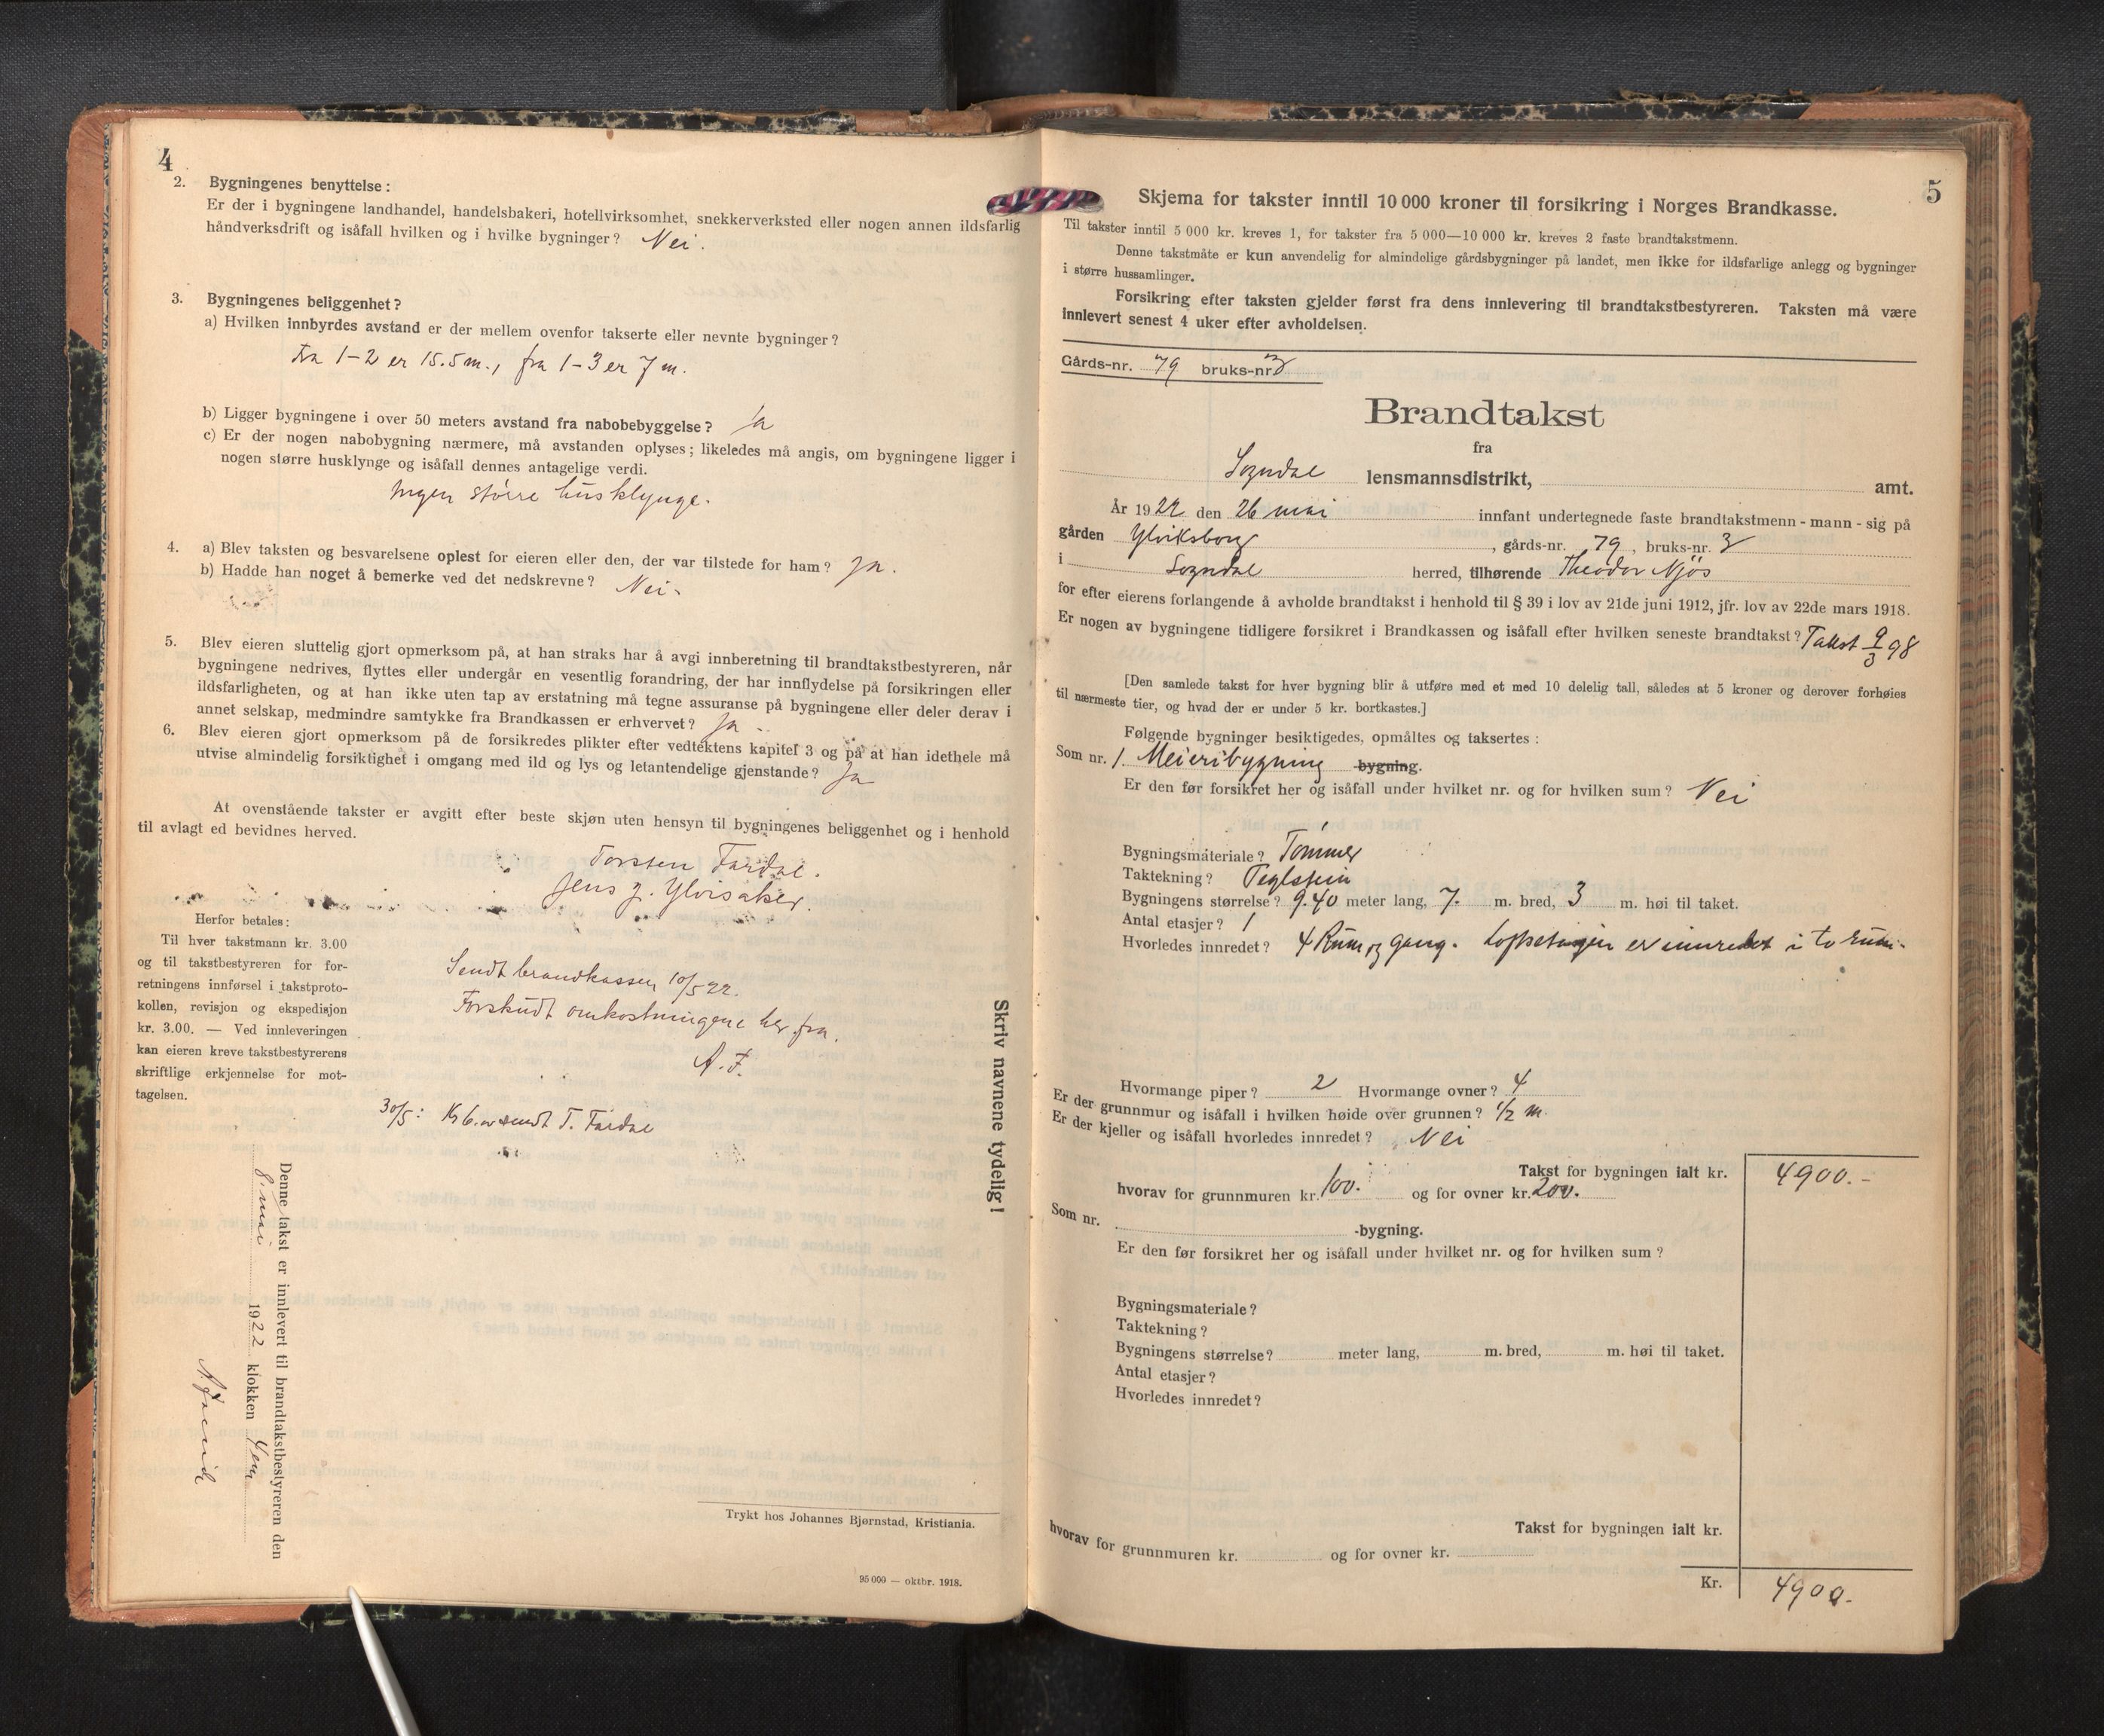 4
2. Bygningenes benyttelse:
Er der i bygningene landhandel, handelsbakeri, hotellvirksomhet, snekkerverksted eller nogen annen ildsfarlig
håndverksdrift og isåfall hvilken og i hvilke bygninger? Nei.
3. Bygningenes beliggenhet?
a) Hvilken innbyrdes avstand er der mellem ovenfor takserte eller nevnte bygninger?
Fra 1-2 er 15.5 m., fra 1-3 er 7 m.
b) Ligger bygningene i over 50 meters avstand fra nabobebyggelse? Ja
c) Er der nogen nabobygning nærmere, må avstanden oplyses; likeledes må angis, om bygningene ligger i
nogen større husklynge og isåfall dennes antagelige verdi.
Ingen större husklynge.
4. a) Blev taksten og besvarelsene oplest for eieren eller den, der var tilstede for ham? Ja.
b) Hadde han noget å bemerke ved det nedskrevne? Nei.
5. Blev eieren sluttelig gjort opmerksom på, at han straks har å avgi innberetning til brandtakstbestyreren, når
bygningene nedrives, flyttes eller undergår en vesentlig forandring, der har innflydelse på forsikringen eller
ildsfarligheten, og at han ikke uten tap av erstatning må tegne assuranse på bygningene eller deler derav i
annet selskap, medmindre samtykke fra Brandkassen er erhvervet? Ja
6. Blev eieren gjort opmerksom på de forsikredes plikter efter vedtektens kapitel 3 og på at han idethele må
utvise almindelig forsiktighet i omgang med ild og lys og letantendelige gjenstande? Ja
At ovenstående takster er avgitt efter beste skjøn uten hensyn til bygningenes beliggenhet og i henhold
til avlagt ed bevidnes herved.
Torsten Fardal.
Jens J. Ylvisaker.
Herfor betales:
Til hver takstmann kr. 3.00
og til takstbestyreren for for-
retningens innførsel i takstproto-
kollen, revisjon og ekspedisjon
kr. 3.00. — Ved innleveringen
kan eieren kreve takstbestyrerens
skriftlige erkjennelse for mot-
tagelsen.
Sendt brandkassen 10/5 22.
Forskudt omkostningene her fra.
A. F.
30/5: Kr 6. sendt T. Fardal
Denne takst er innlevert til brandtakstbestyreren den
8. mai 1922 klokken 4 em
Skriv navnene tydelig!
Trykt hos Johannes Bjørnstad, Kristiania.
95 000 — oktbr. 1918.
5
Skjema for takster inntil 10 000 kroner til forsikring i Norges Brandkasse.
Til takster inntil 5 000 kr. kreves 1, for takster fra 5 000—10 000 kr. kreves 2 faste brandtakstmenn.
Denne takstmåte er kun anvendelig for almindelige gårdsbygninger på landet, men ikke for ildsfarlige anlegg og bygninger
i større hussamlinger.
Forsikring efter taksten gjelder først fra dens innlevering til brandtakstbestyreren. Taksten må være
innlevert senest 4 uker efter avholdelsen.
Gårds-nr. 79 bruks-nr 3
Brandtakst
fra
Sogndal lensmannsdistrikt, amt.
År 1922 den 26 mai innfant undertegnede faste brandtakstmenn - mann - sig på
gården Ylviksborg, gårds-nr. 79, bruks-nr. 3
i Sogndal herred, tilhørende Theodor Njös
for efter eierens forlangende å avholde brandtakst i henhold til § 39 i lov av 21de juni 1912, jfr. lov av 22de mars 1918.
Er nogen av bygningene tidligere forsikret i Brandkassen og isåfall efter hvilken seneste brandtakst? Takst 9/3 98
[Den samlede takst for hver bygning blir å utføre med et med 10 delelig tall, således at 5 kroner og derover forhøies
til nærmeste tier, og hvad der er under 5 kr. bortkastes.]
Følgende bygninger besiktigedes, opmåltes og taksertes:
Som nr. 1. Meieribygning bygning.
Er den før forsikret her og isåfall under hvilket nr. og for hvilken sum? Nei
Bygningsmateriale? Tömmer
Taktekning? Teglstein
Bygningens størrelse? 9.40 meter lang, 7. m. bred, 3 m. høi til taket.
Antal etasjer? 1
Hvorledes innredet? 4 Rum og gang. Loftsetagen er innredet i to rum.
Hvormange piper? 2 Hvormange ovner? 4
Er der grunnmur og isåfall i hvilken høide over grunnen? 1/2 m.
Er der kjeller og isåfall hvorledes innredet? Nei
Takst for bygningen ialt kr. 4900.-
hvorav for grunnmuren kr. 100. og for ovner kr. 200.
Som nr. -bygning.
Er den før forsikret her og isåfall under hvilket nr. og for hvilken sum?
Bygningsmateriale?
Taktekning?
Bygningens størrelse? meter lang, m. bred, m. høi til taket.
Antal etasjer?
Hvorledes innredet?
Takst for bygningen ialt kr.
hvorav for grunnmuren kr. og for ovner kr.
Kr. 4900.-